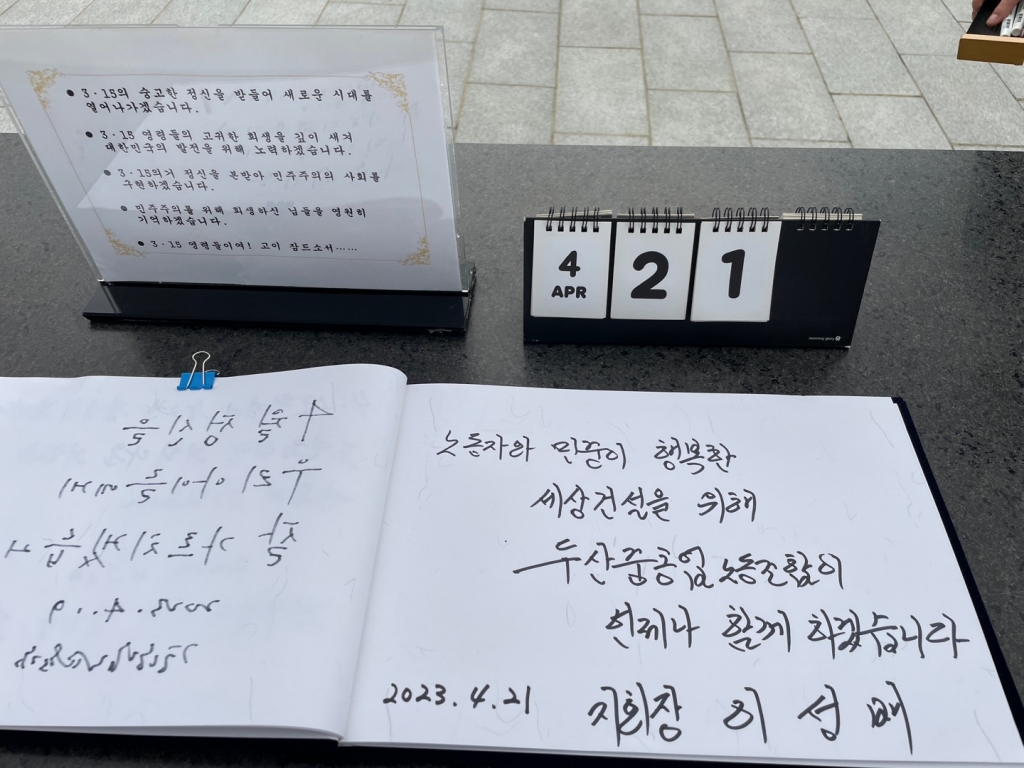 ● 3·15의 숭고한 정신을 받들어 새로운 시대를
열어나가겠습니다.
● 3·15 영령들의 고귀한 희생을 깊이 새겨
대한민국의 발전을 위해 노력하겠습니다.
● 3·15의거 정신을 본받아 민주주의의 사회를
구현하겠습니다.
● 민주주의를 위해 희생하신 님들을 영원히
기억하겠습니다.
● 3·15 영령들이여! 고이 잠드소서……
4 APR 2 1
정신을
우리 아이들에게
잘 가르치겠습니다
노동자와 민중이 행복한
세상건설을 위해
두산중공업노동조합이
언제나 함께 하겠습니다
2023.4.21 지회장 이성배